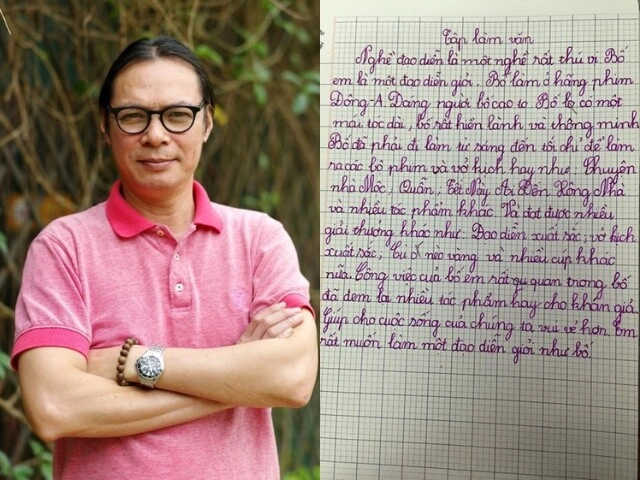 Tập làm văn
Nghề đạo diễn là một nghề rất thú vị. Bố
em là một đạo diễn giỏi. Bố làm ở hãng phim
Đông-A. Dáng người bố cao to. Bố lại có một
mái tóc dài, bố rất hiền lành và thông minh
Bố đã phải đi làm từ sáng đến tối chỉ để làm
ra các bộ phim và vở kịch hay như. Chuyện
nhà Mốc, Quẫn, Tết Này Ai Đến Xông Nhà
và nhiều tác phẩm khác. Và đạt được nhiều
giải thưởng khác như. Đạo diễn xuất sắc, vở kịch
xuất sắc, Cù nèo vàng và nhiều cúp khác
nữa. Công việc của bố em rất quan trọng bố
đã đem lại nhiều tác phẩm hay cho khán giả
Giúp cho cuộc sống của chúng ta vui vẻ hơn. Em
rất muốn làm một đạo diễn giỏi như bố.